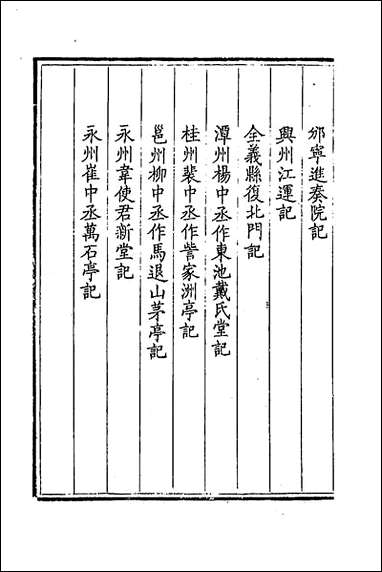 邠寧進奏院記
興州江運記
全義縣復北門記
潭州楊中丞作東池戴氏堂記
桂州裴中丞作訾家洲亭記
邕州柳中丞作馬退山茅亭記
永州韋使君新堂記
永州崔中丞萬石亭記